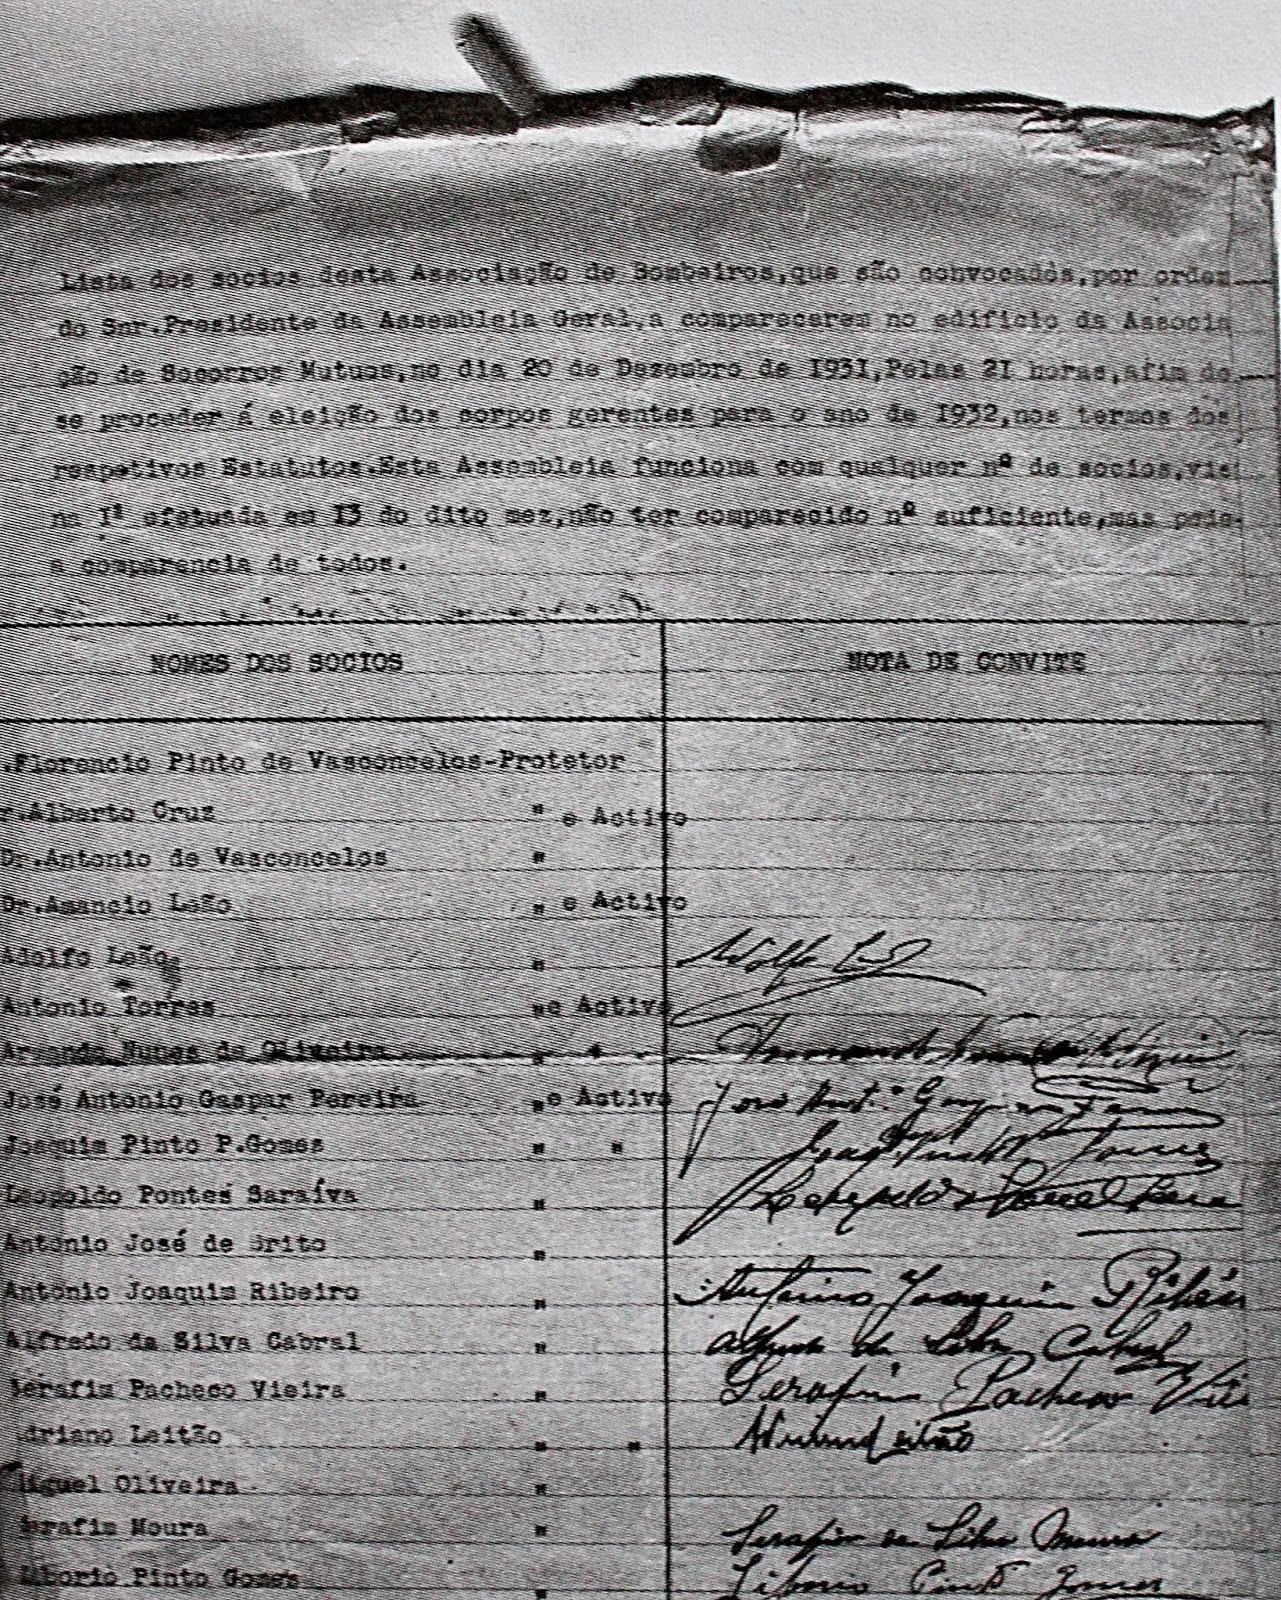 Lista dos socios desta Associação de Bombeiros,que são convocados,por ordem
do Snr.Presidente da Assembleia Geral,a comparecerem no edificio da Associa
ção de Socorros Mutuos,no dia 20 de Dezembro de 1931,Pelas 21 horas,afim de
se proceder á eleição dos corpos gerentes para o ano de 1932,nos termos dos
respetivos Estatutos.Esta Assembleia funciona com qualquer nº de socios,vis
na 1ª efetuada em 13 do dito mez,não ter comparecido nº suficiente,mas pede-
a comparencia de todos.
NOMES DOS SOCIOS NOTA DE CONVITE
.Florencio Pinto de Vasconcelos-Protetor
r.Alberto Cruz " e Activo
Dr.Antonio de Vasconcelos "
Dr.Amancio Leão " e Activo
Adolfo Leão " Adolfo Leão
Antonio Torres "e Activo
Armando Nunes de Oliveira " " Armando Nunes
José Antonio Gaspar Pereira "e Activo José Antº Gaspar Pereira
Joaquim Pinto P.Gomes " " Joaq. Pinto P. Gomes
Leopoldo Pontes Saraíva " Leopoldo
António José de Brito "
António Joaquim Ribeiro " António Joaquim Ribeiro
Alfredo da Silva Cabral " Alfredo da Silva Cabral
Serafim Pacheco Vieira " Serafim Pacheco Viei
driano Leitão " " Adriano Leitão
Miguel Oliveira "
Serafim Moura " Serafim da Silva Moura
Liborio Pinto Gomes " Liborio Pinto Gomes